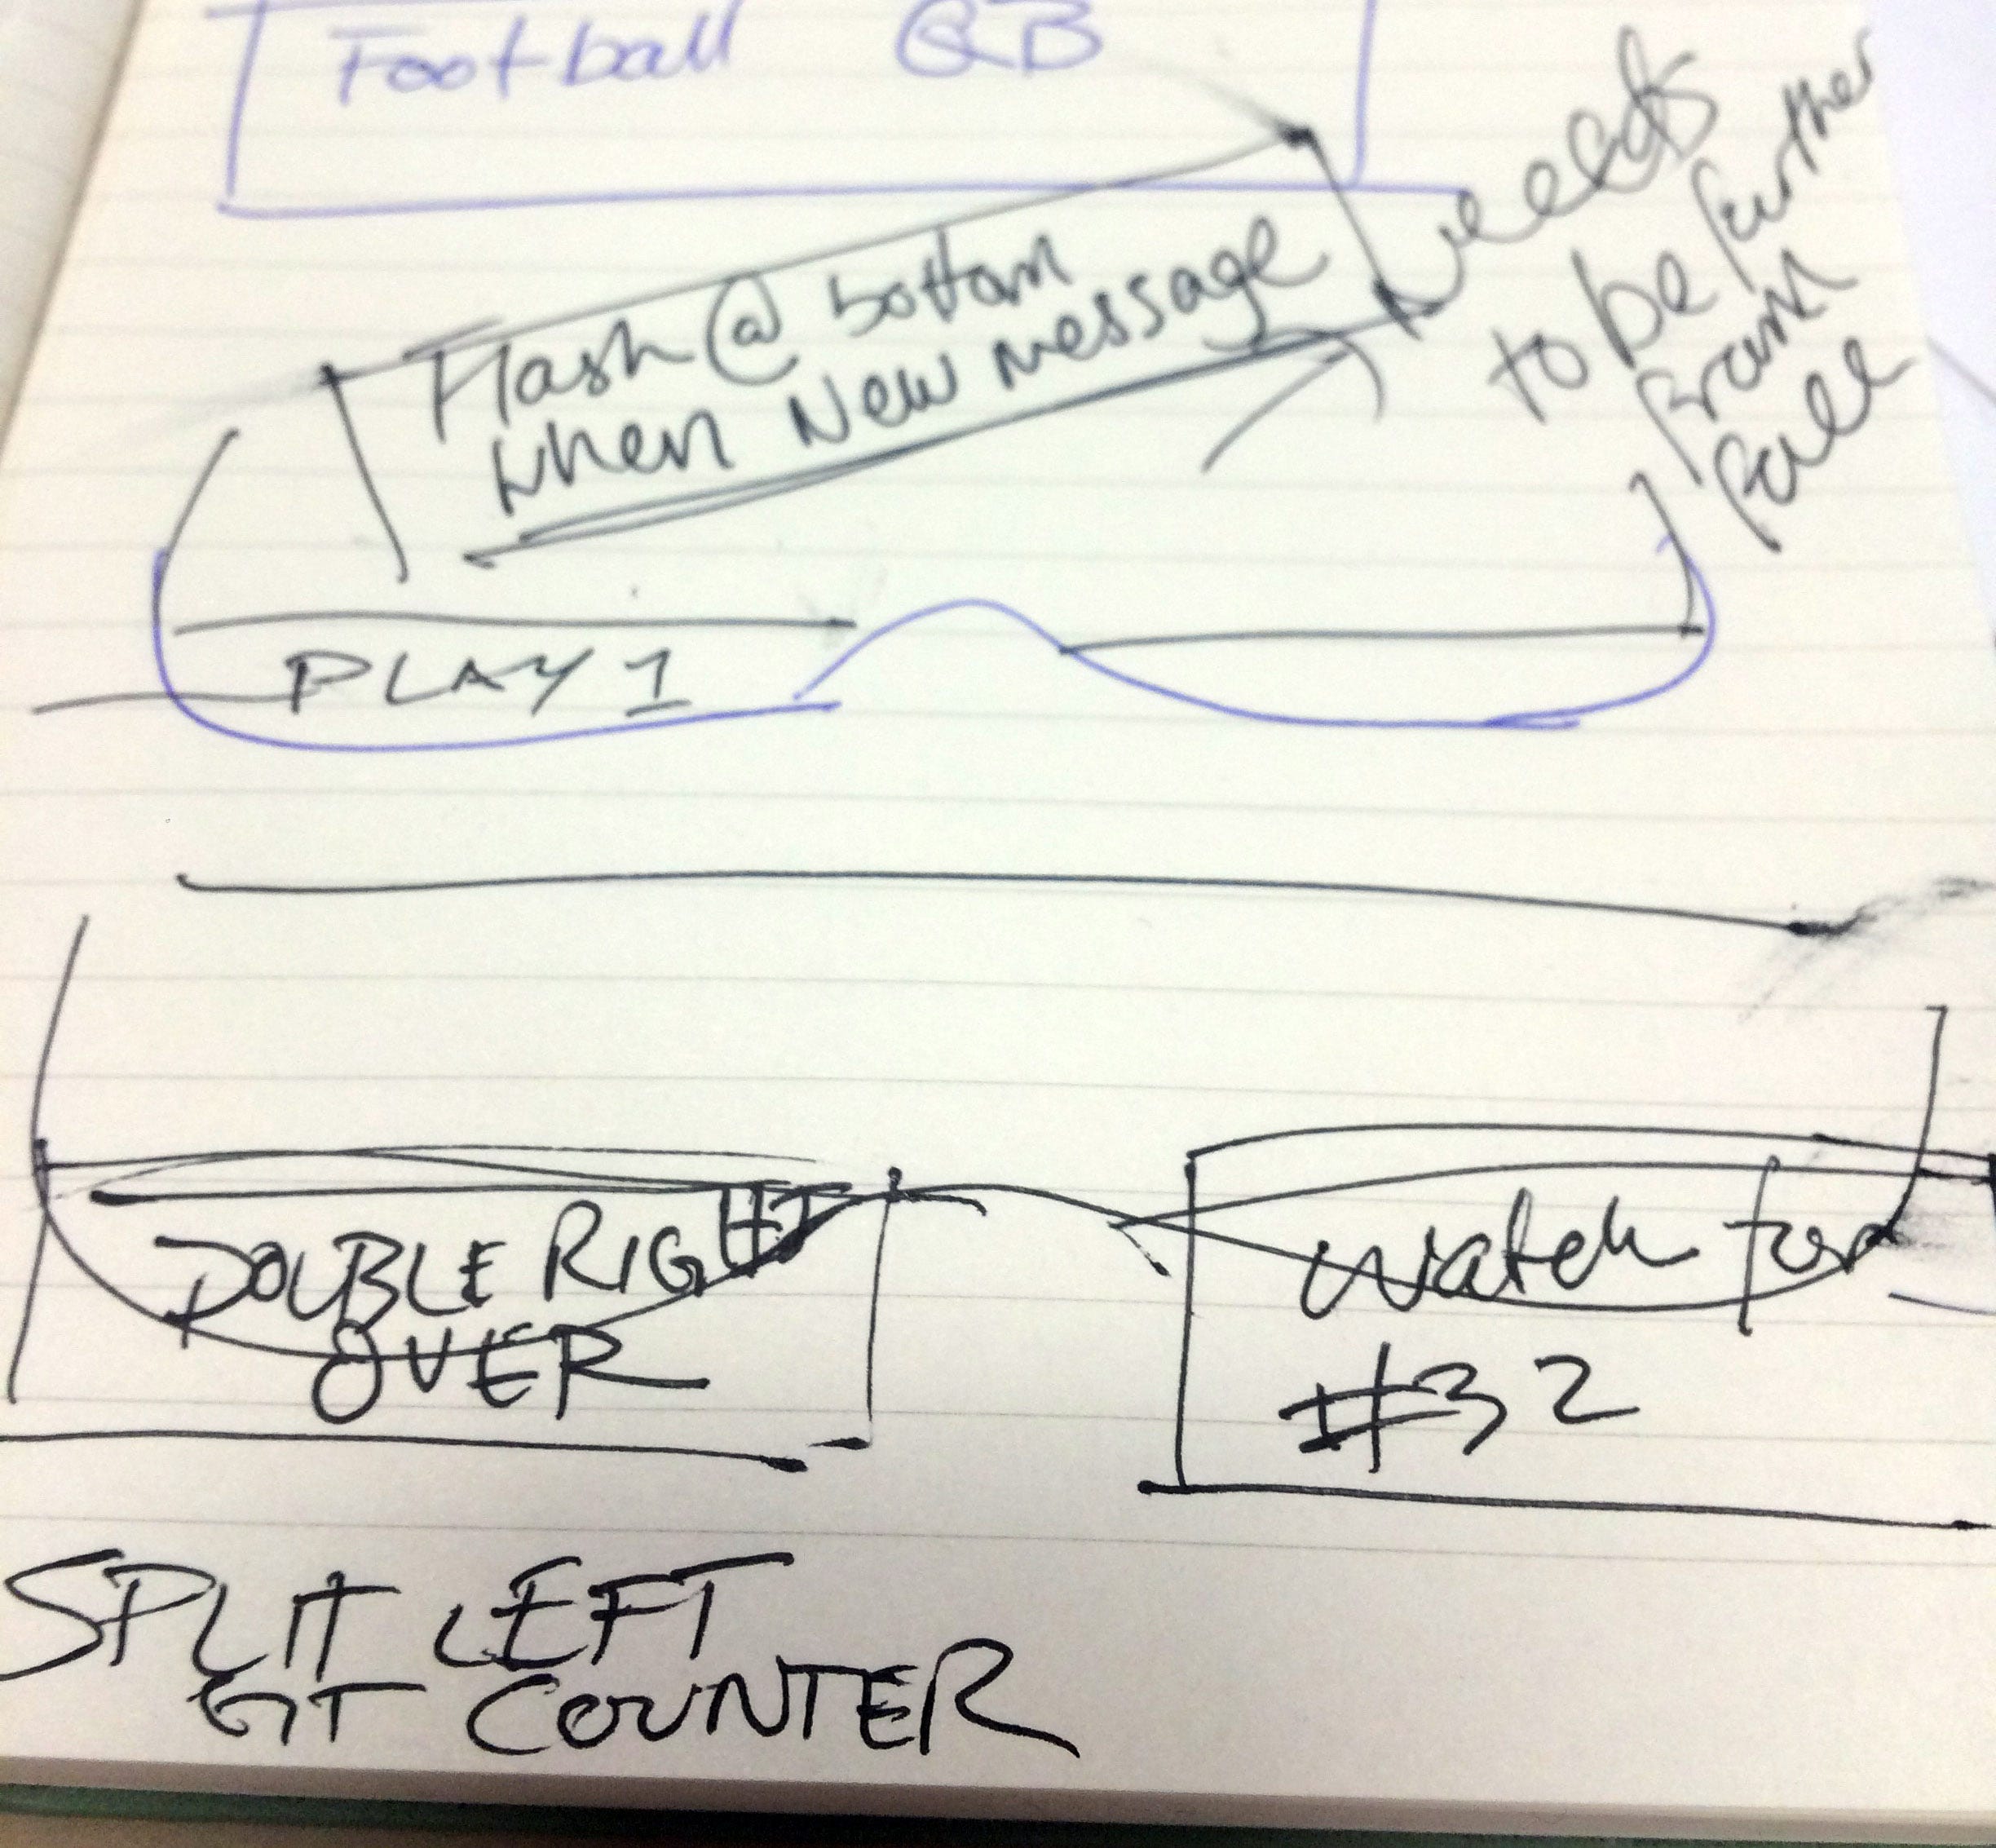 Football QB
Flash @ bottom
when New message
needs
to be further
from
face
PLAY 1
DOUBLE RIGHT
OVER
Watch for
#32
SPLIT LEFT
GT COUNTER